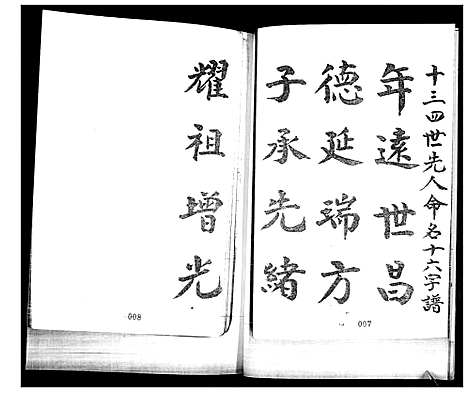 十三四世先人命名十六字譜
年遠世昌
德延瑞方
子承先緒
007
耀祖增光
008